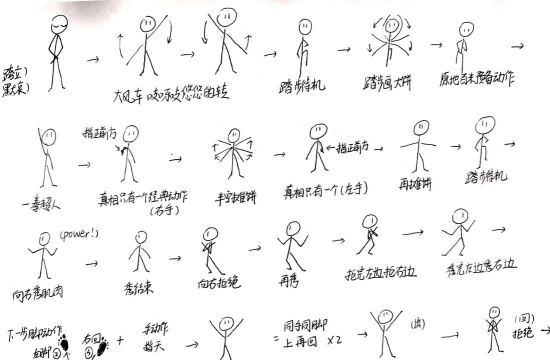 踏立)
黑喂)
大风车吱呀吱悠悠的转
踏步待机
踏步画大饼
原地百米预备动作
一毒超人
指正前方
真相只有一个经典动作
(右手)
半空摊饼
指正前方
真相只有一个(左手)
再摊饼
踏步待机
(power!)
向右秀肌肉
秀结束
向右拒绝
再秀
拒完左边拒右边
秀完左边秀右边
下一步脚动作
右回
+
手动作
指天
=
同手同脚
上再回 ×2
(出)
(回)
拒绝